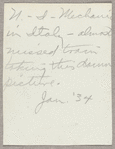 in Italy - almost
missed train
taking this darn
picture.
Jan. '34